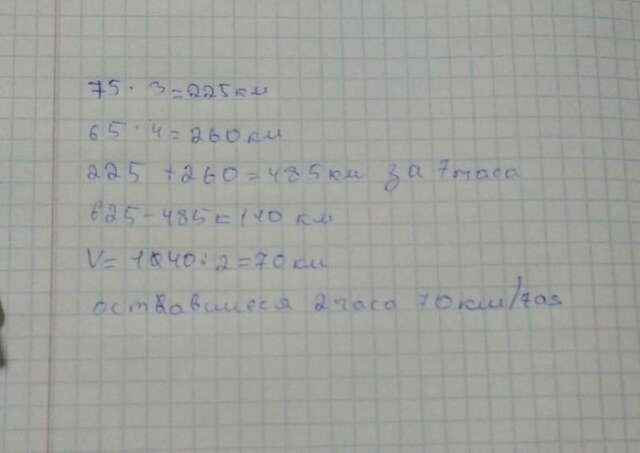 75 · 3 = 225 км
65 · 4 = 260 км
225 + 260 = 485 км за 7 часа
625 - 485 = 140 км
V = 140 : 2 = 70 км
оставшиеся 2 часа 70 км/час